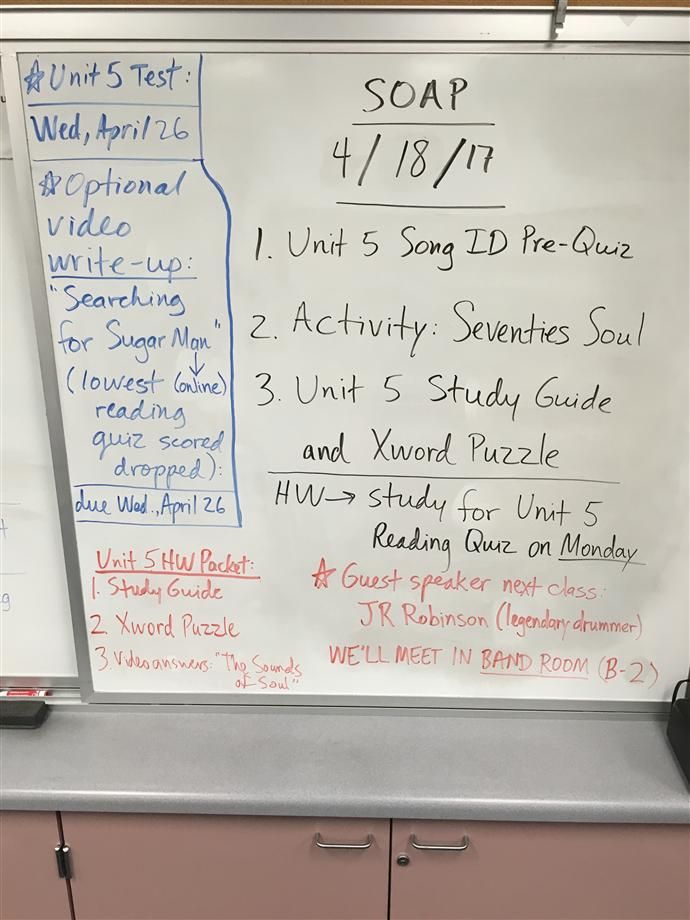 ☆ Unit 5 Test:
Wed, April 26
☆ Optional
video
write-up:
"Searching
for Sugar Man"
(lowest (online)
reading
quiz scored
dropped):
due Wed., April 26
SOAP
4/18/17
1. Unit 5 Song ID Pre-Quiz
2. Activity: Seventies Soul
3. Unit 5 Study Guide
and Xword Puzzle
HW → study for Unit 5
Reading Quiz on Monday
Unit 5 HW Packet:
1. Study Guide
2. Xword Puzzle
3. Video answers: "The Sounds
of Soul"
☆ Guest speaker next class:
JR Robinson (legendary drummer)
WE'LL MEET IN BAND ROOM (B-2)